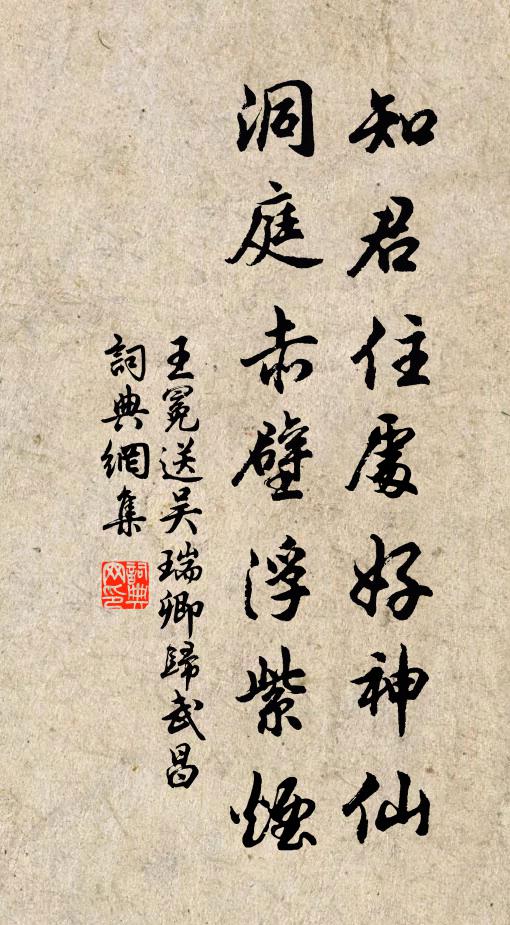 知君住處好神仙
洞庭赤壁浮紫煙
王冕送吴瑞卿歸武昌
詞典網集
詞典網印